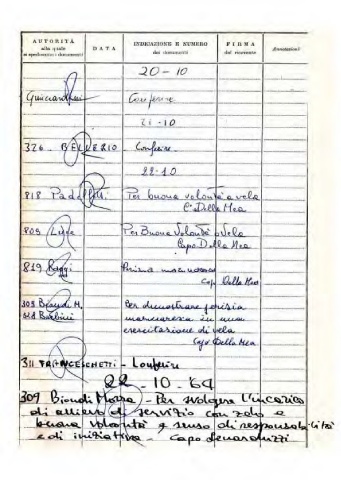 AUTORITÀ
alla quale
si spediscono i documenti
DATA
INDICAZIONE E NUMERO
dei documenti
FIRMA
del ricevente
Annotazioni
20-10
Guicciardini Conferire
21-10
326 - BELVERIO - Conferire
22-10
818 Padelletti Per buona volontà a vela
C° Della Mea
809 Per Buona Volontà a Vela
Capo Della Mea
819 Raggi
Capo Della Mea
Per dimostrare perizia
Barbini marinaresca in una
esercitazione di vela
Capo Della Mea
311 FRANCESCHETTI - Conferire
22-10-64
309 Biondi Morra - Per svolgere l'incarico
di allievo di servizio con zelo e
buona volontà e senso di responsabilità
e di iniziativa - Capo